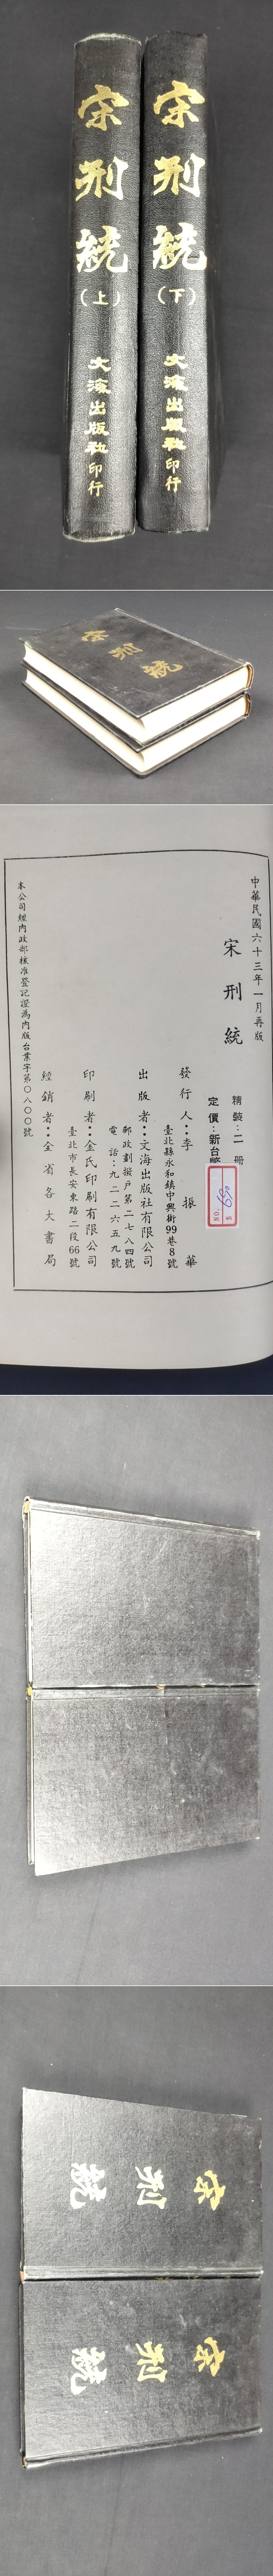 宋刑統
(上)
文海出版社印行
宋刑統
(下)
文海出版社印行
宋刑統
中華民國六十三年一月再版
宋刑統
精裝：二冊
定價：新台幣
NO.
$ 650
發行人：李振華
臺北縣永和鎮中興街99巷8號
出版者：文海出版社有限公司
郵政劃撥戶第二七八四號
電話：九二二六五九號
印刷者：金氏印刷有限公司
臺北市長安東路二段66號
經銷者：全省各大書局
本公司經內政部核准登記證為內版台業字第〇八〇〇號
宋刑統
宋刑統